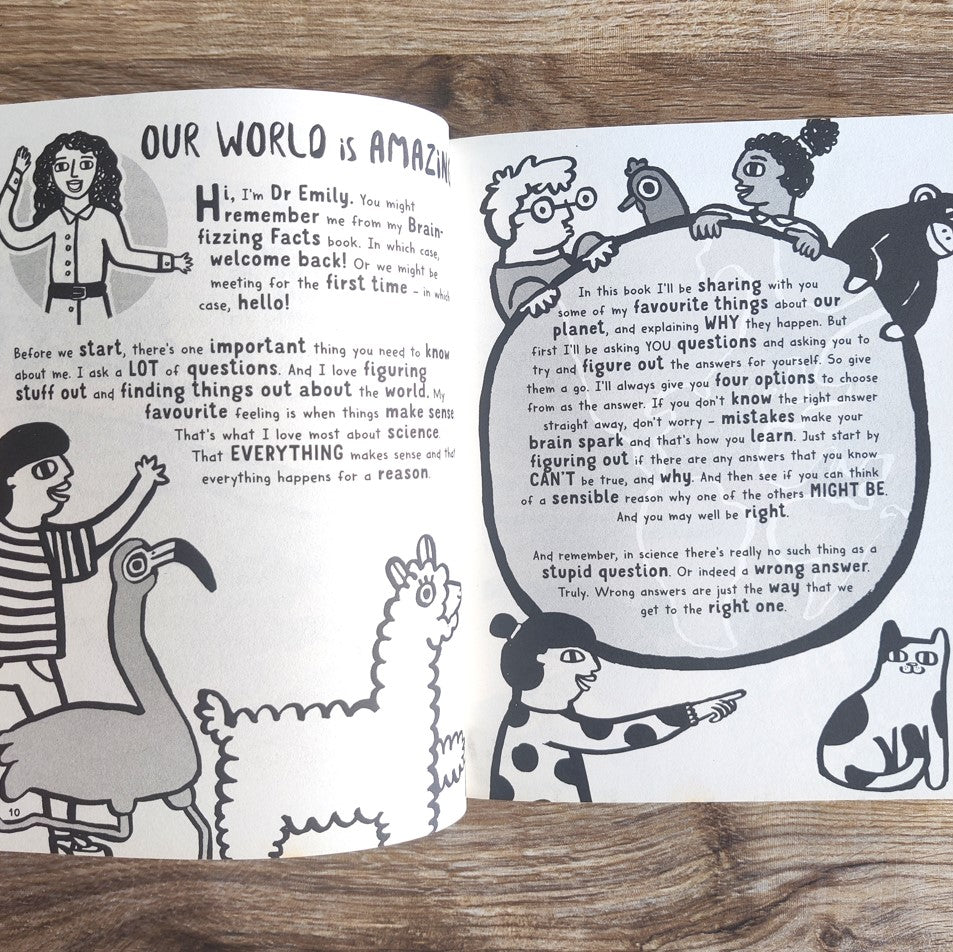 OUR WORLD is AMAZiN
Hi, I'm Dr Emily. You might
remember me from my Brain-
fizzing Facts book. In which case,
welcome back! Or we might be
meeting for the first time – in which
case, hello!
Before we start, there's one important thing you need to know
about me. I ask a LOT of questions. And I love figuring
stuff out and finding things out about the world. My
favourite feeling is when things make sense
That's what I love most about science.
That EVERYTHING makes sense and that
everything happens for a reason.
10
In this book I'll be sharing with you
some of my favourite things about our
planet, and explaining WHY they happen. But
first I'll be asking YOU questions and asking you to
try and figure out the answers for yourself. So give
them a go. I'll always give you four options to choose
from as the answer. If you don't know the right answer
straight away, don't worry – mistakes make your
brain spark and that's how you learn. Just start by
figuring out if there are any answers that you know
CAN'T be true, and why. And then see if you can think
of a sensible reason why one of the others MIGHT BE.
And you may well be right.
And remember, in science there's really no such thing as a
stupid question. Or indeed a wrong answer.
Truly. Wrong answers are just the way that we
get to the right one.